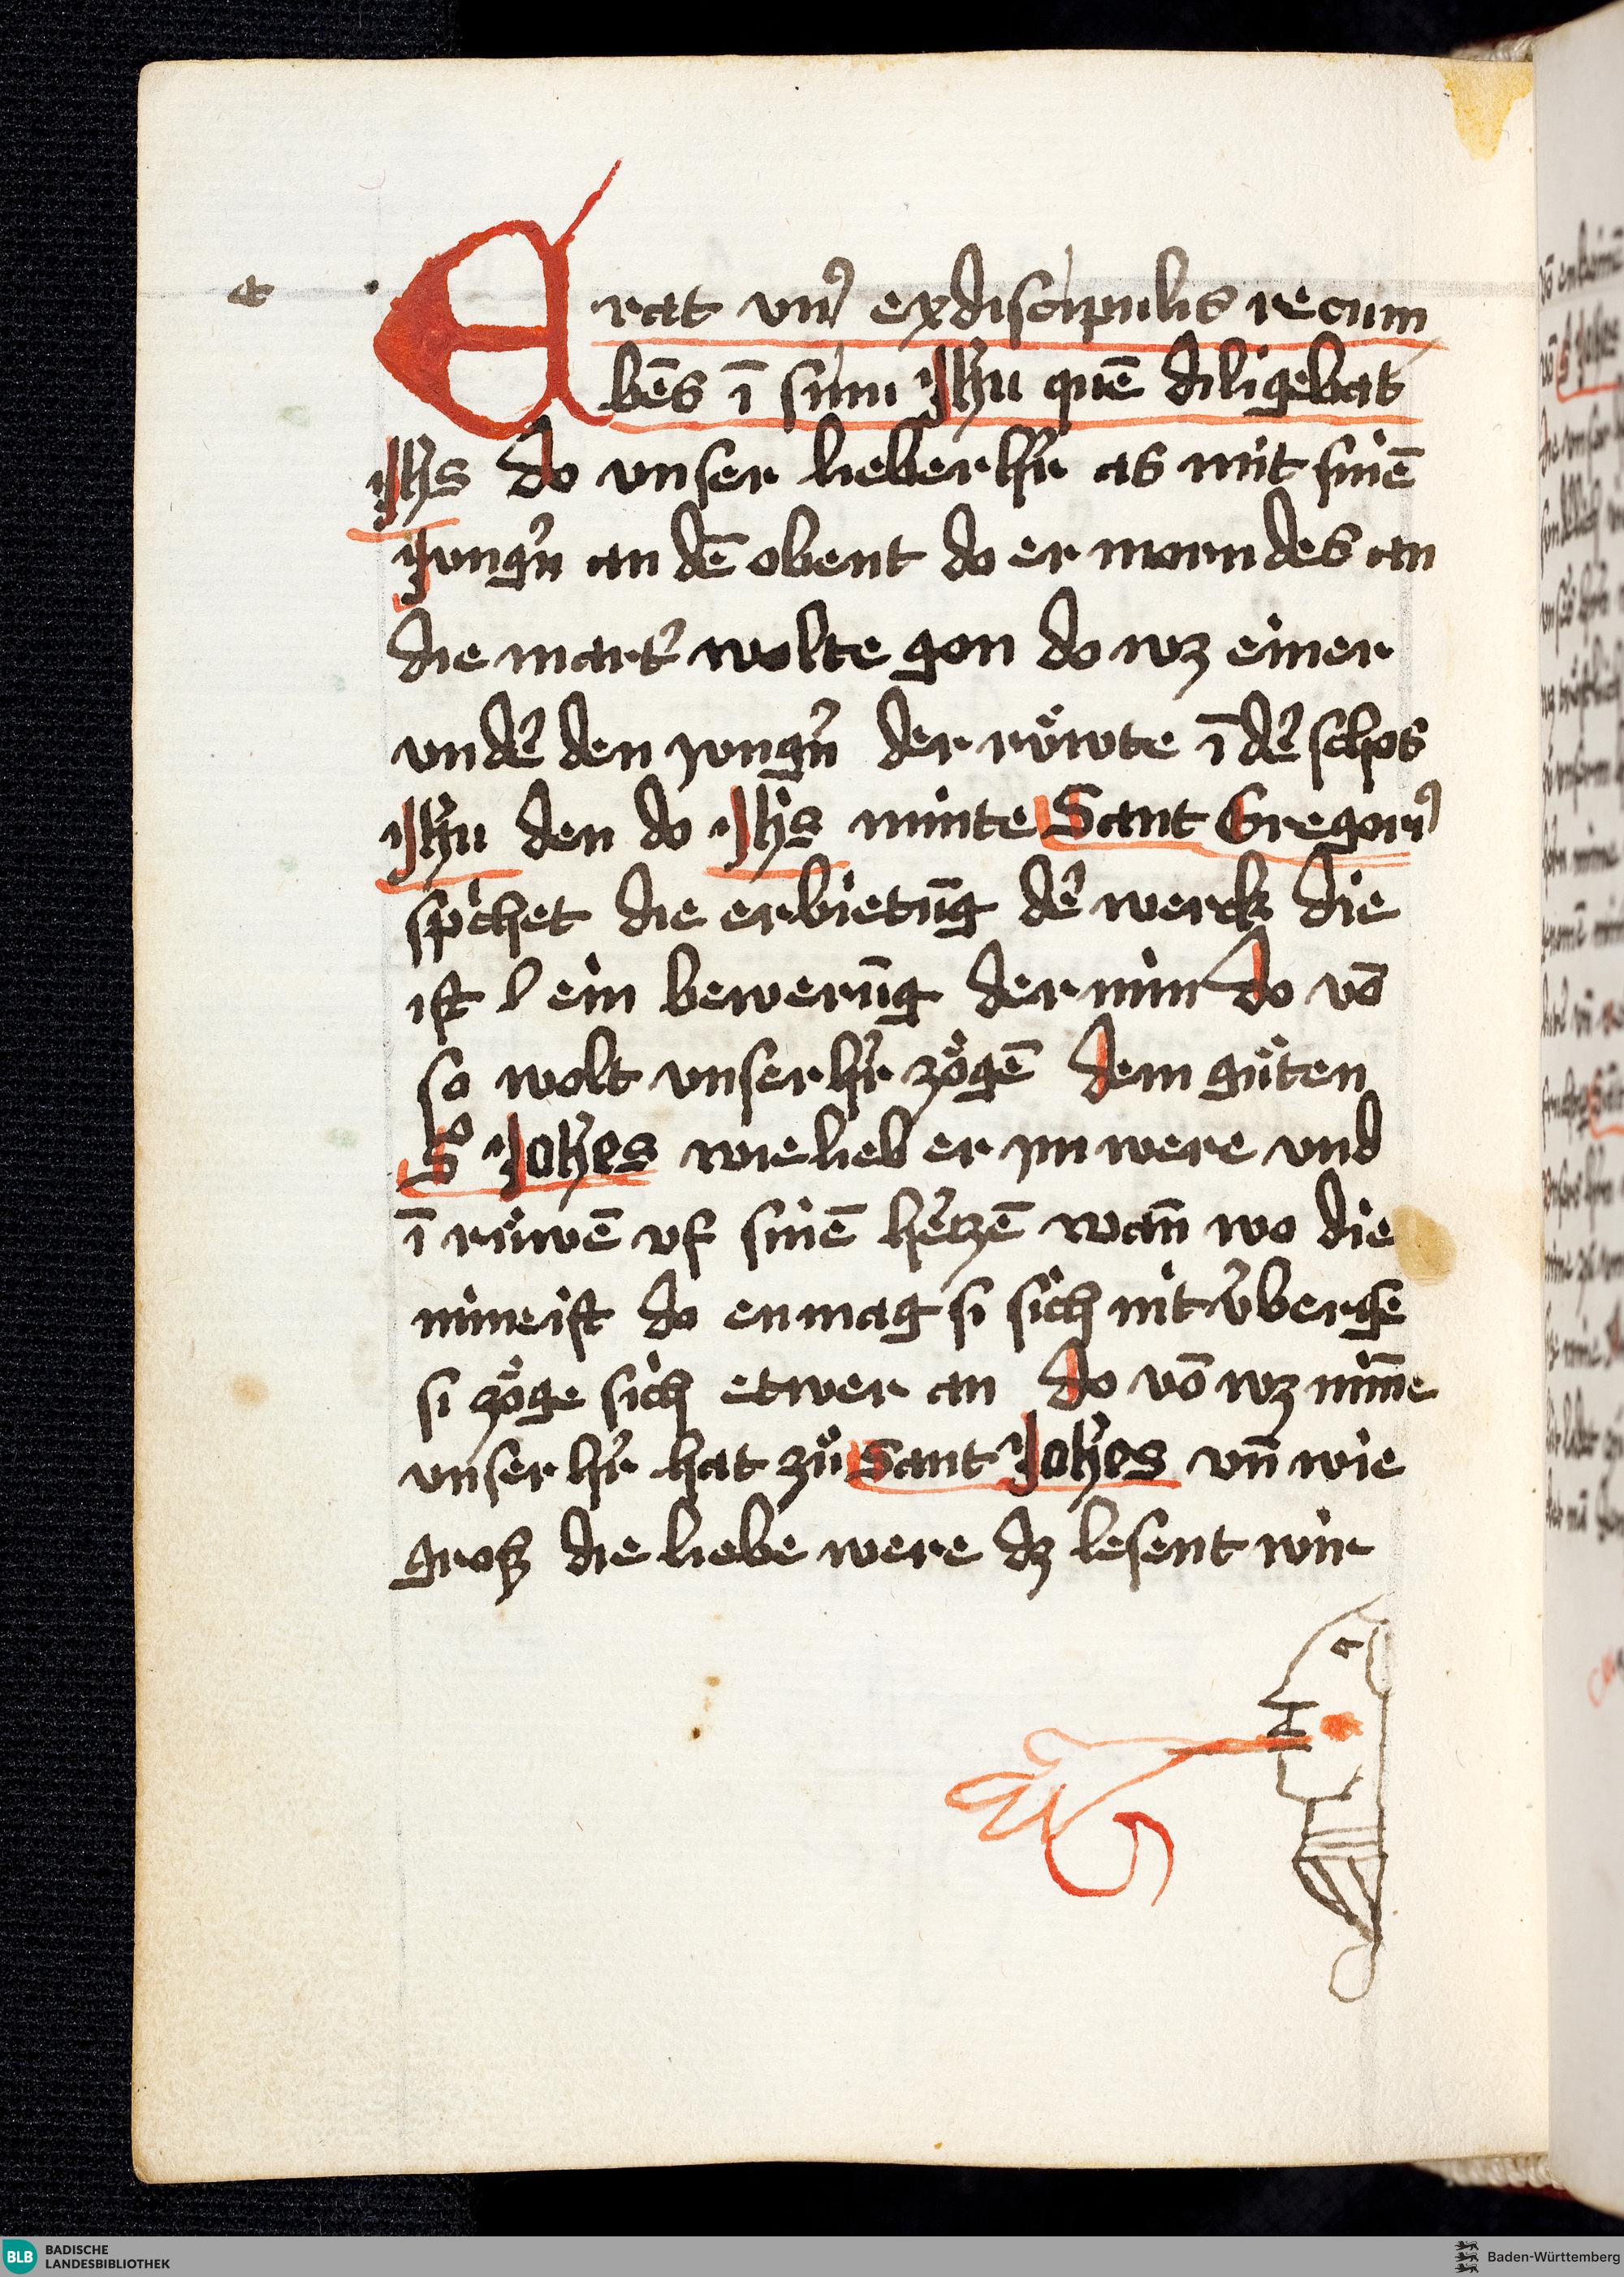 e
Erat vnꝰ ex discipulis recum
bēs ī sinu Jhu quē diligebat
Jhs do vnser lieber hr̄ as mit sinē
Jungn̄ an dē obent do er morndes an
die mart͛ wolte gon do wz einer
vnd͛ den jungn̄ der rǔwte ī d͛ schos
Jhu den do Jhs minte Sant Gregoriꝰ
spͥchet die erbietūg d͛ werck die
ist ein bewerūg der min do vō
so wolt vnser hr̄ zögē dem gůten
S Johes wie lieb er jm were vnd
ī růwē vf sinē h͛tzē wān wo die
mine ist do enmag si sich nit v͛bergē
si zöge sich etwer an do vō wz mīne
vnser hr̄ hat zů Sant Johes vn̄ wie
groß die liebe were dz lesent wir
BLB BADISCHE
LANDESBIBLIOTHEK
Baden-Württemberg